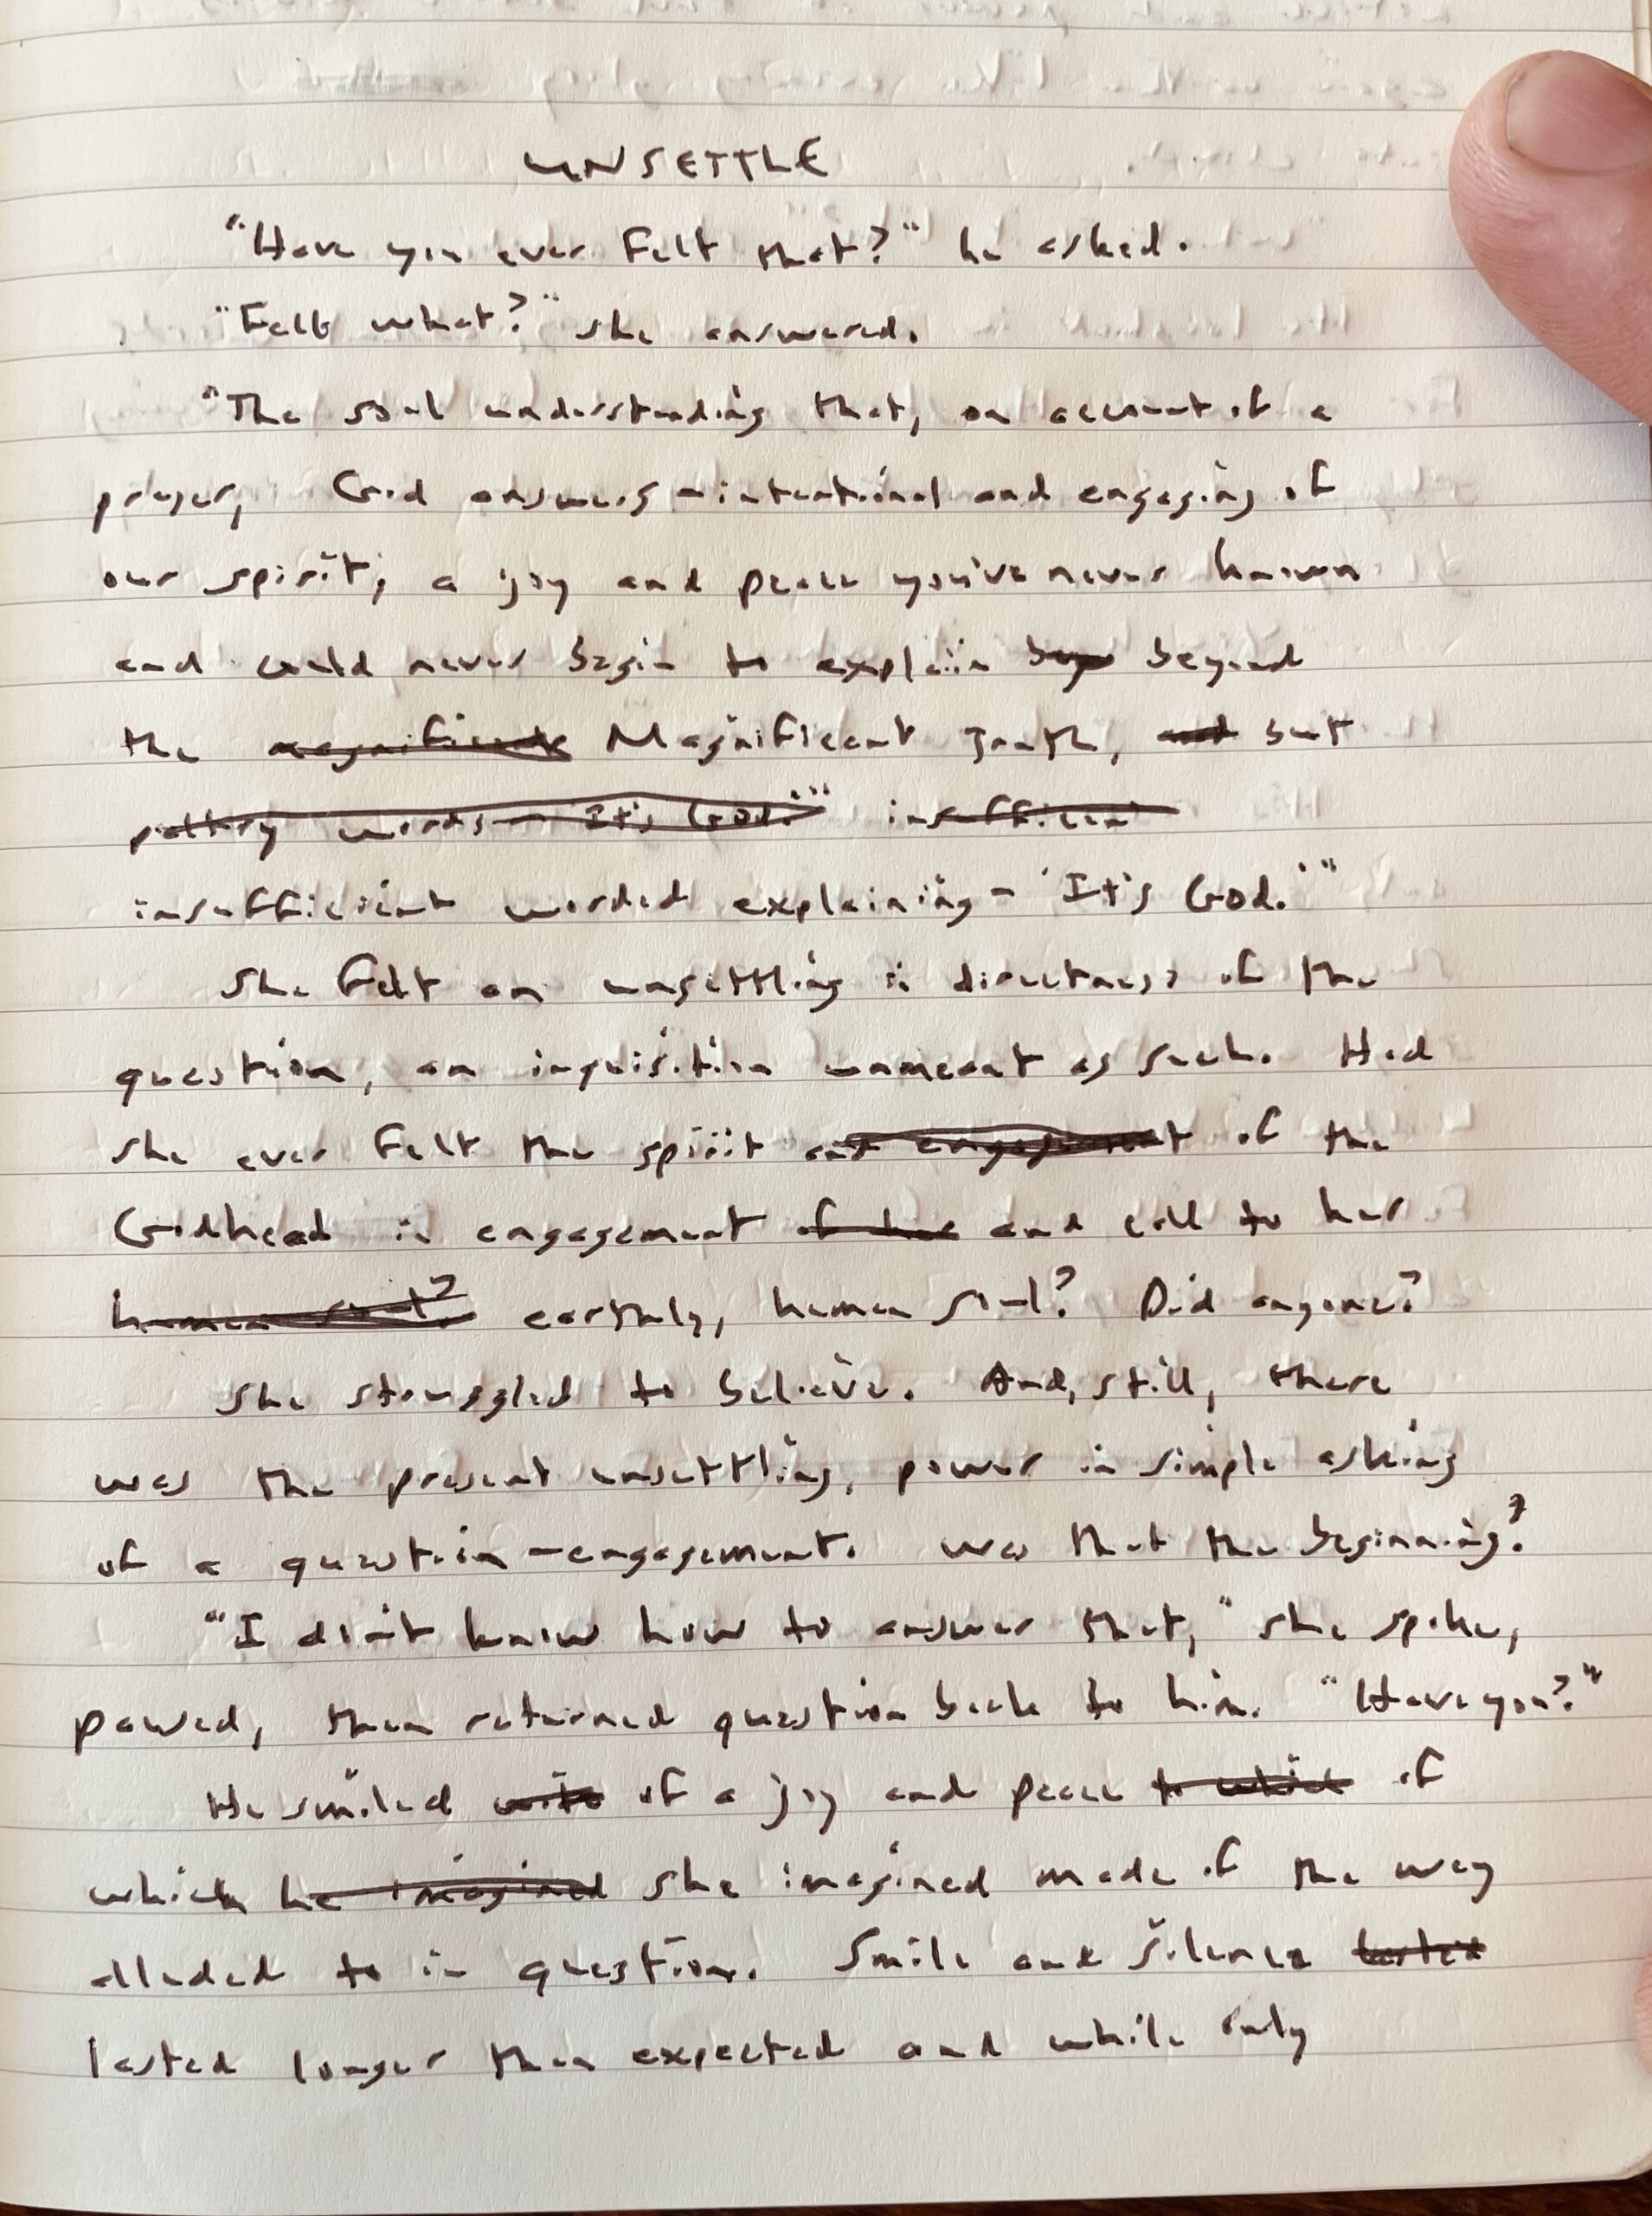 UNSETTLE
"Have you ever felt that?" he asked.
"Felt what?" she answered.
"The soul understanding that, on account of a
prayer, God answers – intentional and engaging of
our spirit; a joy and peace you've never known
and could never begin to explain bey beyond
the magnificent Magnificent Truth, and but
paltry words – It's God.'" insufficien
insufficient worded explaining – 'It's God.'"
She felt an unsettling in directness of the
question, an inquisition unmeant as such. Had
she ever felt the spirit and engagement of the
Godhead in engagement of her and call to her
human soul? earthly, human soul? Did anyone?
She struggled to believe. And, still, there
was the present unsettling, power in simple asking
of a question – engagement. Was that the beginning?
"I don't know how to answer that," she spoke,
paused, then returned question back to him. "Have you?"
He smiled with of a joy and peace to which of
which he imagined she imagined made of the way
alluded to in question. Smile and silence lasted
lasted longer than expected and while only